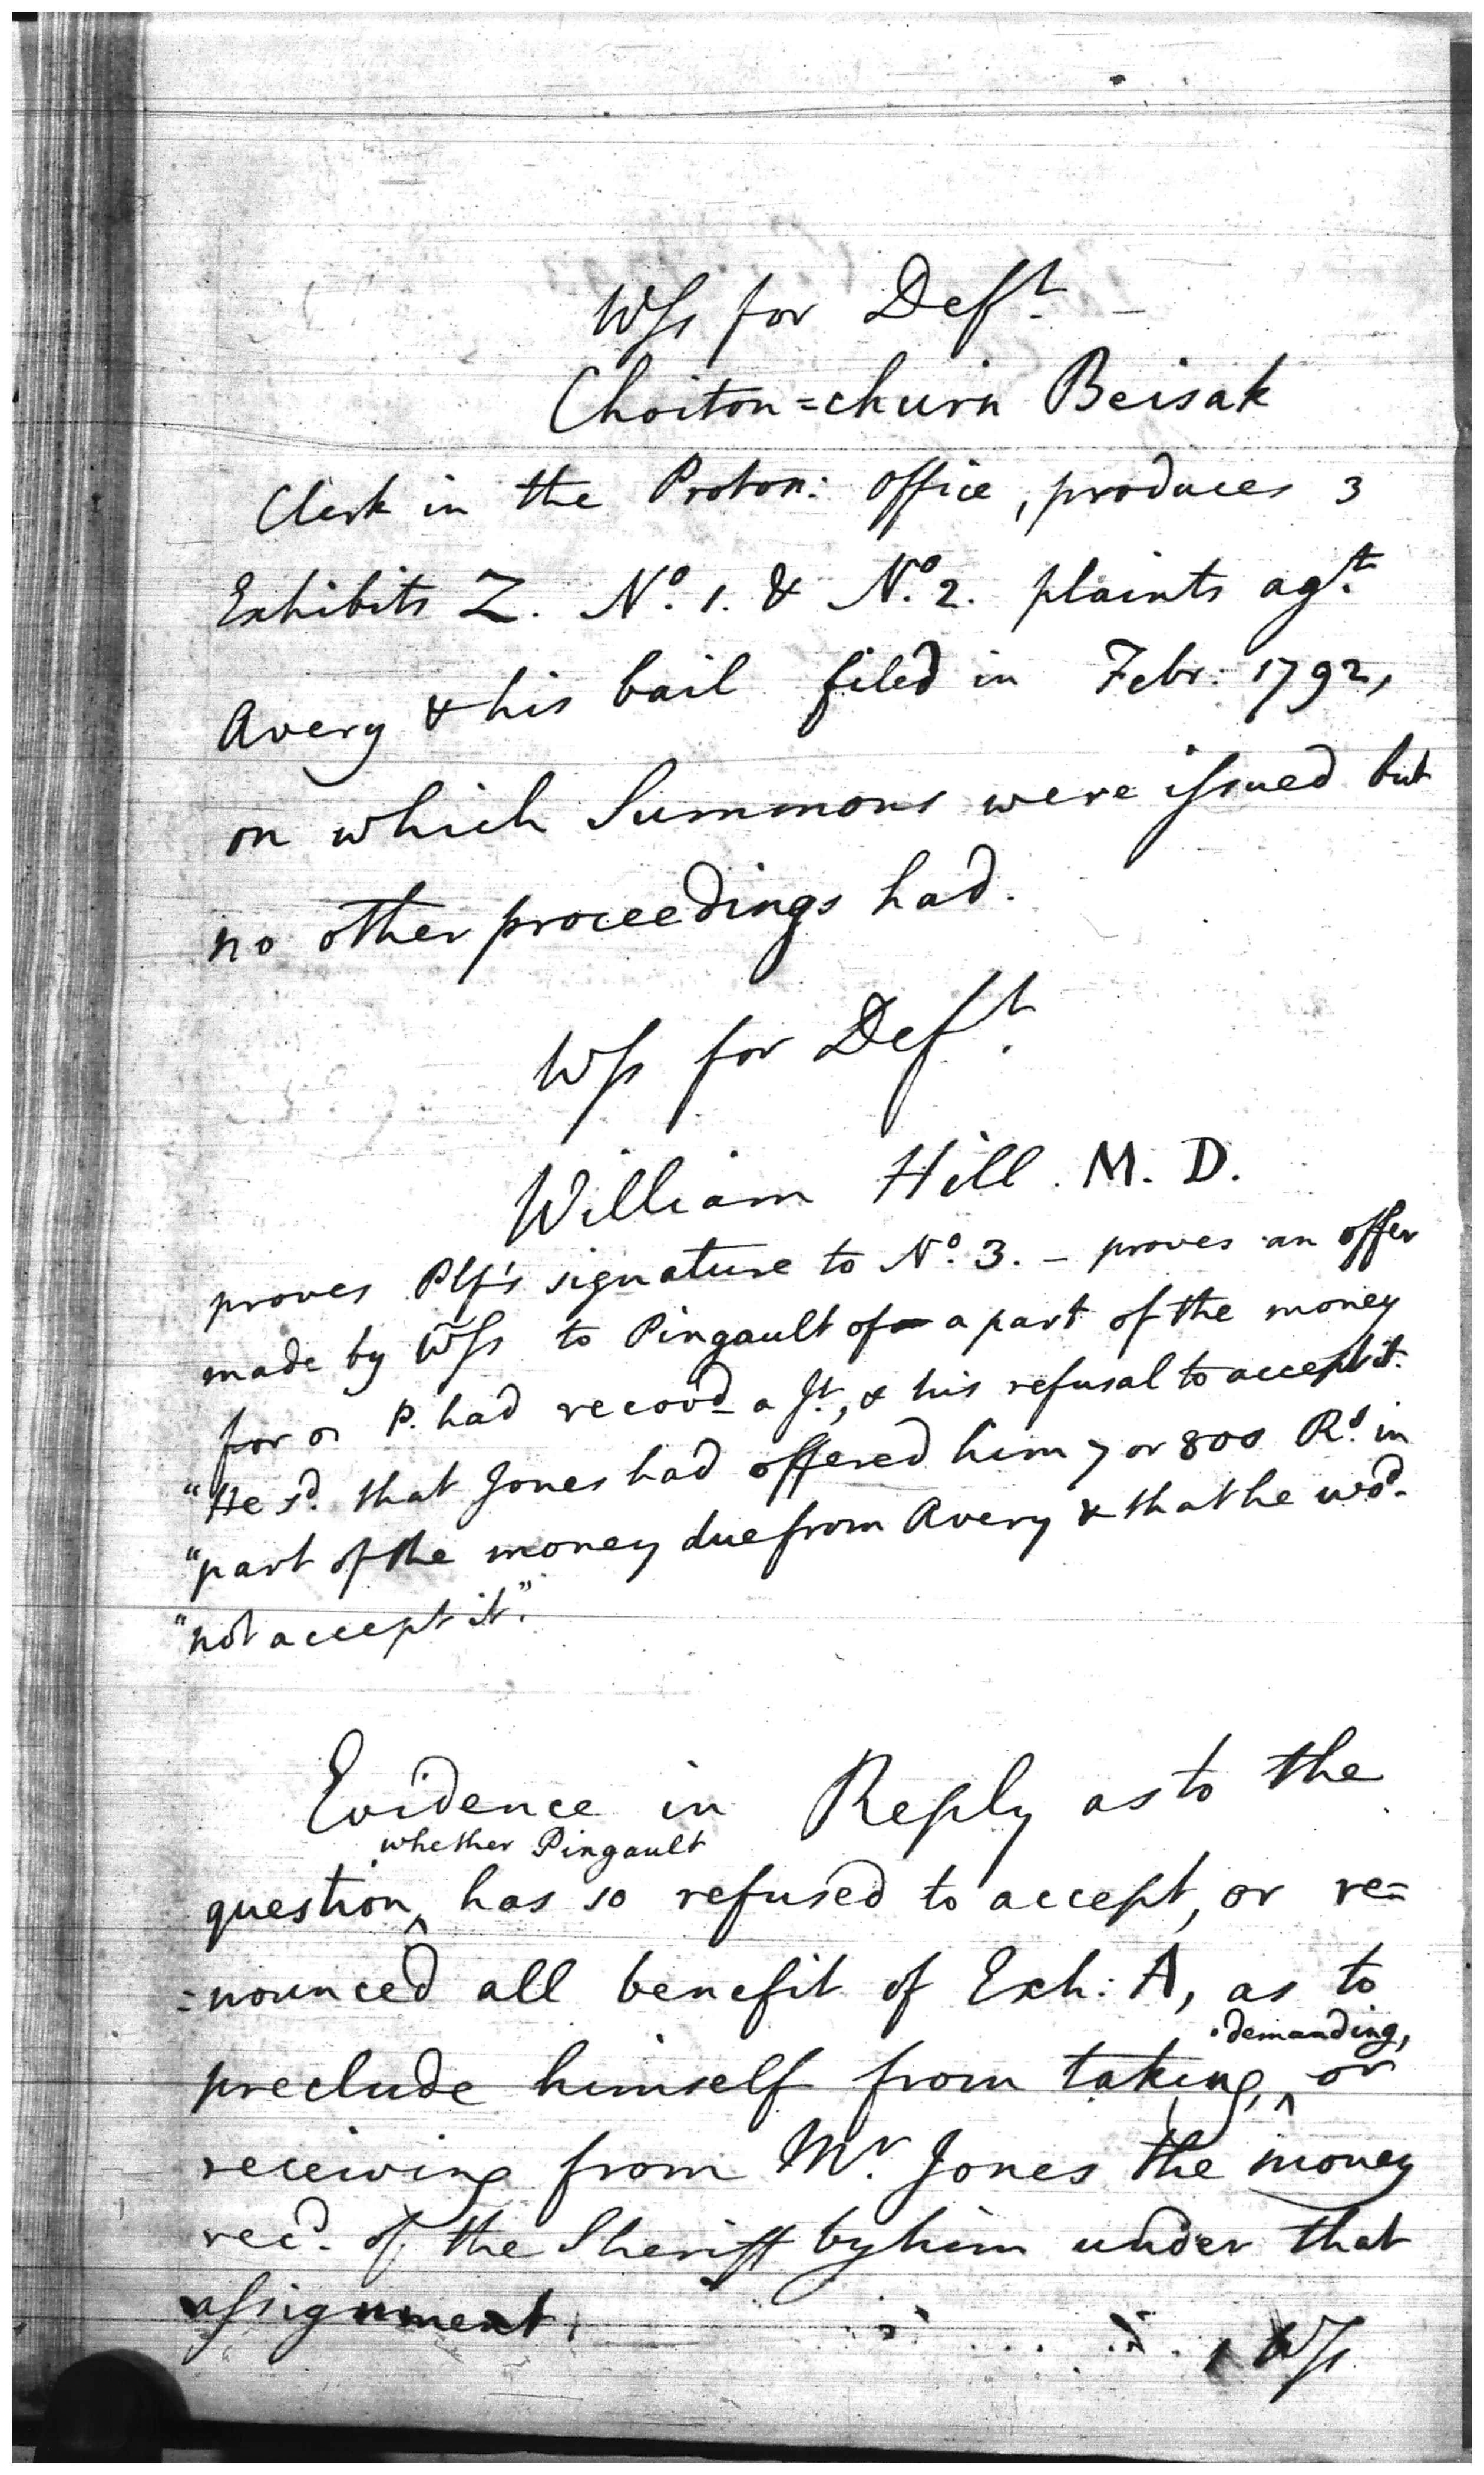 Wss for Deft. -
Choiton=churn Beisak
Clerk in the Proton: office, produces 3
Exhibits Z. No. 1. & No. 2. plaints agt.
Avery & his bail filed in Febr. 1792,
on which Summons were issued but
no other proceedings had.
Wss for Deft.
William Hill. M. D.
proves Plf's signature to No. 3. - proves an offer
made by Wss to Pingault of a part of the money
for P. had recovd a Jt., & his refusal to accept it.
"He sd. that Jones had offered him 7 or 800 Rs. in
"part of the money due from Avery & that he wod.
"not accept it."
Evidence in Reply as to the
whether Pingault
question ^ has so refused to accept, or re=
=nounced all benefit of Exh: A, as to
demanding,
preclude himself from taking, ^ or
receiving from Mr. Jones the money
recd. of the Sheriff by him under that
assignment.
Wss